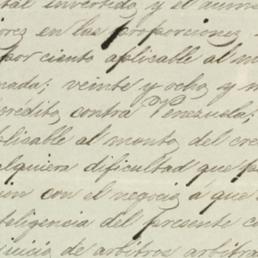 tal invertido y el aum
ores en las proporciones
por ciento aplicable al m
nada; veinte y ocho y m
crédito contra Venezuela;
plicable al monto del cre
alquiera dificultad que p
ion con el negocio a que
teligencia del presente co
juicio de arbitros arbitra